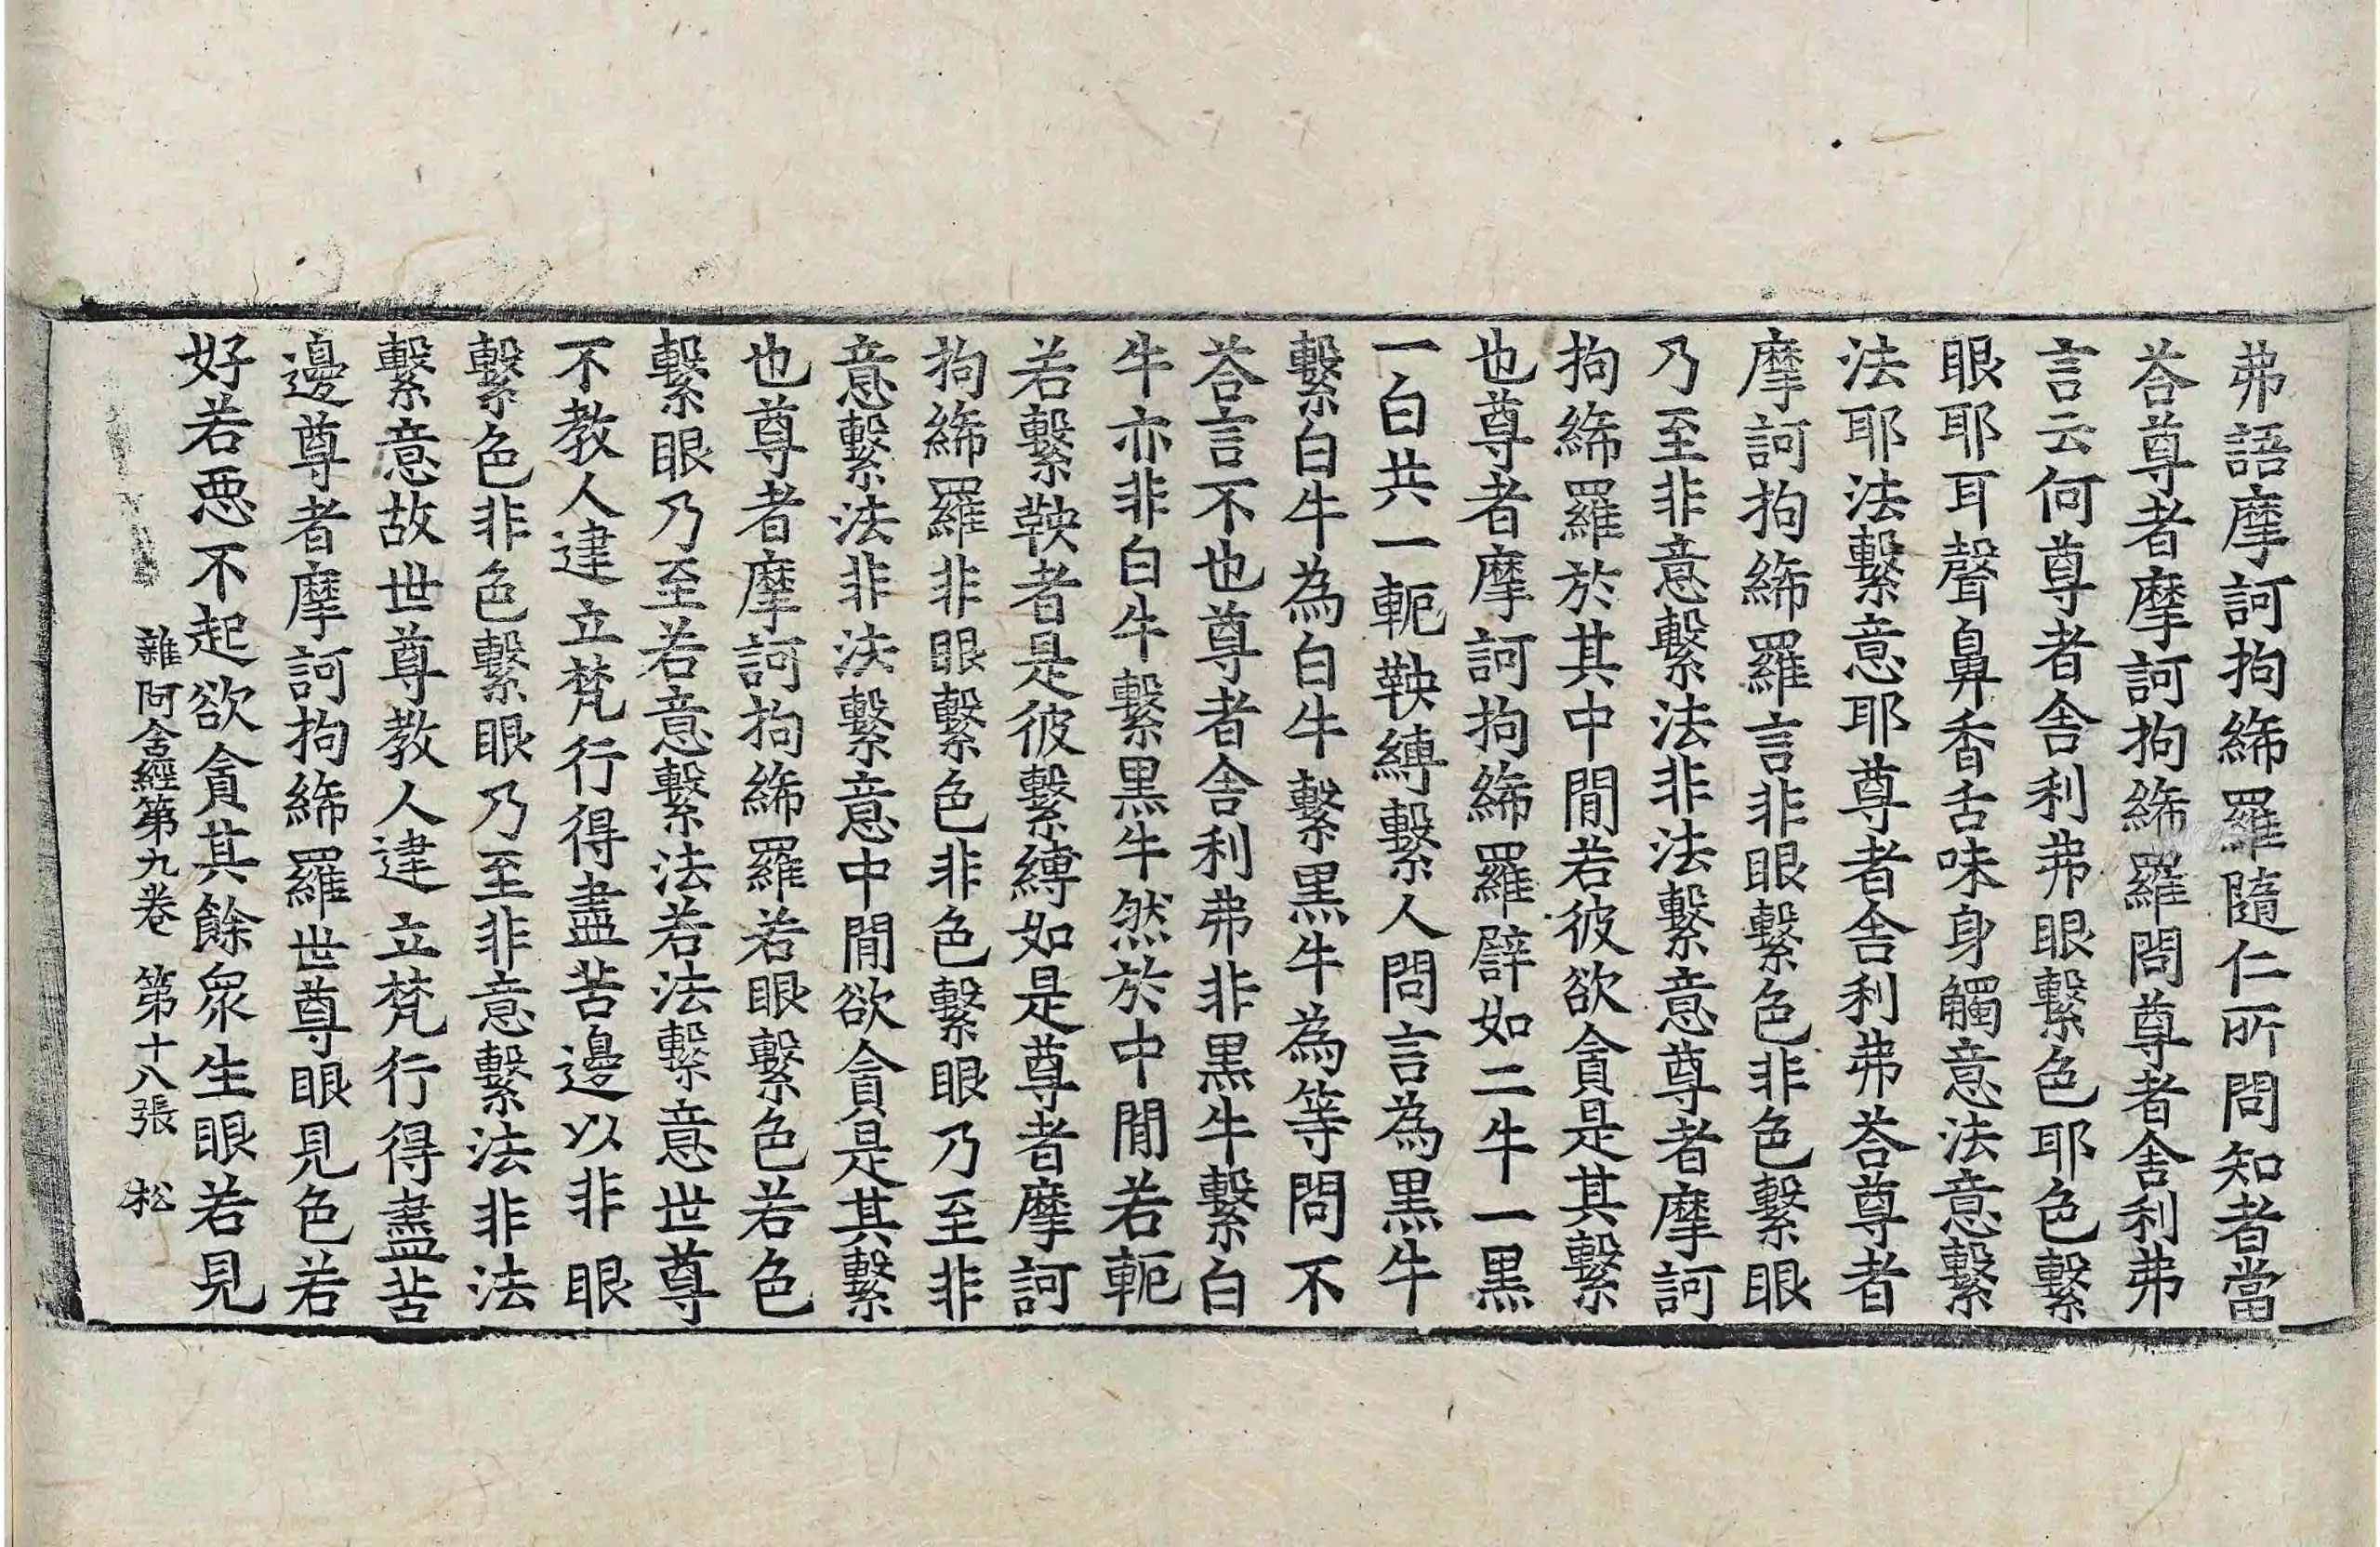 弗語摩訶拘絺羅隨仁所問知者當
荅尊者摩訶拘絺羅問尊者舎利弗
言云何尊者舎利弗眼繫色耶色繫
眼耶耳聲鼻香舌味身觸意法意繫
法耶法繫意耶尊者舎利弗荅尊者
摩訶拘絺羅言非眼繫色非色繫眼
乃至非意繫法非法繫意尊者摩訶
拘絺羅於其中閒若彼欲貪是其繫
也尊者摩訶拘絺羅譬如二牛一黒
一白共一軛鞅縛繫人問言為黒牛
繫白牛為白牛繫黒牛為等問不
荅言不也尊者舎利弗非黒牛繫白
牛亦非白牛繫黒牛然於中閒若軛
若繫鞅者是彼繫縛如是尊者摩訶
拘絺羅非眼繫色非色繫眼乃至非
意繫法非法繫意中閒欲貪是其繫
也尊者摩訶拘絺羅若眼繫色若色
繫眼乃至若意繫法若法繫意世尊
不教人建立梵行得盡苦邊以非眼
繫色非色繫眼乃至非意繫法非法
繫意故世尊教人建立梵行得盡苦
邊尊者摩訶拘絺羅世尊眼見色若
好若惡不起欲貪其餘衆生眼若見
雜阿含經第九卷 第十八張 松